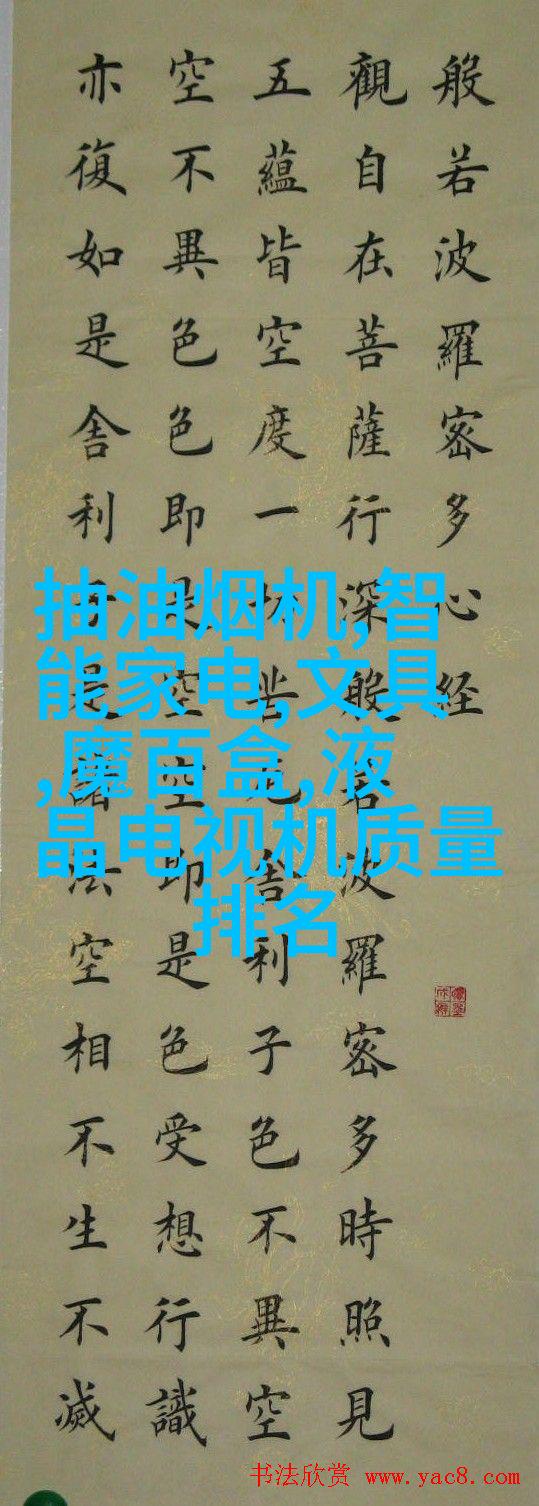 般若波羅密多心経
觀自在菩薩行深般若波羅密多時照見
五蘊皆空度一切苦厄舎利子色不異空
空不異色色即是空空即是色受想行識
亦復如是舎利子是諸法空相不生不滅
抽油烟机,智
能家电,文具
,魔百盒,液
晶电视机质量
排名
书法欣赏 www.yac8.com